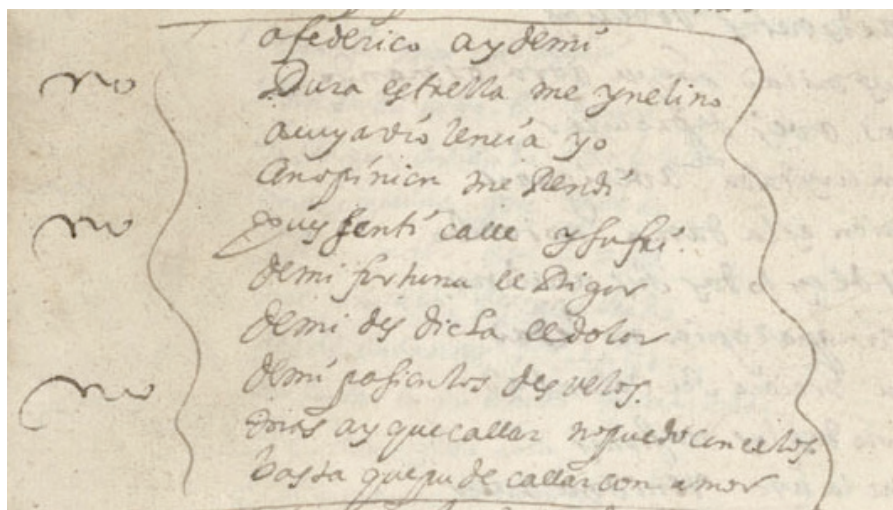 a federico ay de mi
no
Dura estrella me ynclino
a cuya violencia yo
con opinion me Rendi
no
pues senti calle y sufri
de mi fortuna el Rigor
de mi desdicha el dolor
no
de mi pasion los desvelos
mas ay que callar no puedo con celos
basta que pude callar con amor